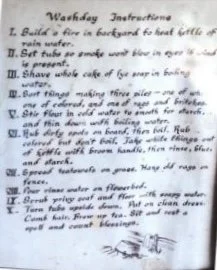 Washday Instructions
I. Build a fire in backyard to heat kettle of
rain water.
II. Set tubs so smoke won't blow in eyes if wind
is present.
III. Shave whole cake of lye soap in boiling
water.
IV. Sort things making three piles - one of white,
one of colored, and one of rags and britches.
V. Stir flour in cold water to smooth for starch,
and thin down with boiling water.
VI. Rub dirty spots on board, then boil. Rub
colored but don't boil. Take white things out
of kettle with broom handle, then rinse, blue,
and starch.
VII. Spread teatowels on grass. Hang old rags on
fence.
VIII. Pour rinse water on flowerbed.
IX. Scrub privy seat and floor with soapy water.
X. Turn tubs upside down. Put on clean dress.
Comb hair. Brew up tea. Sit and rest a
spell and count blessings.